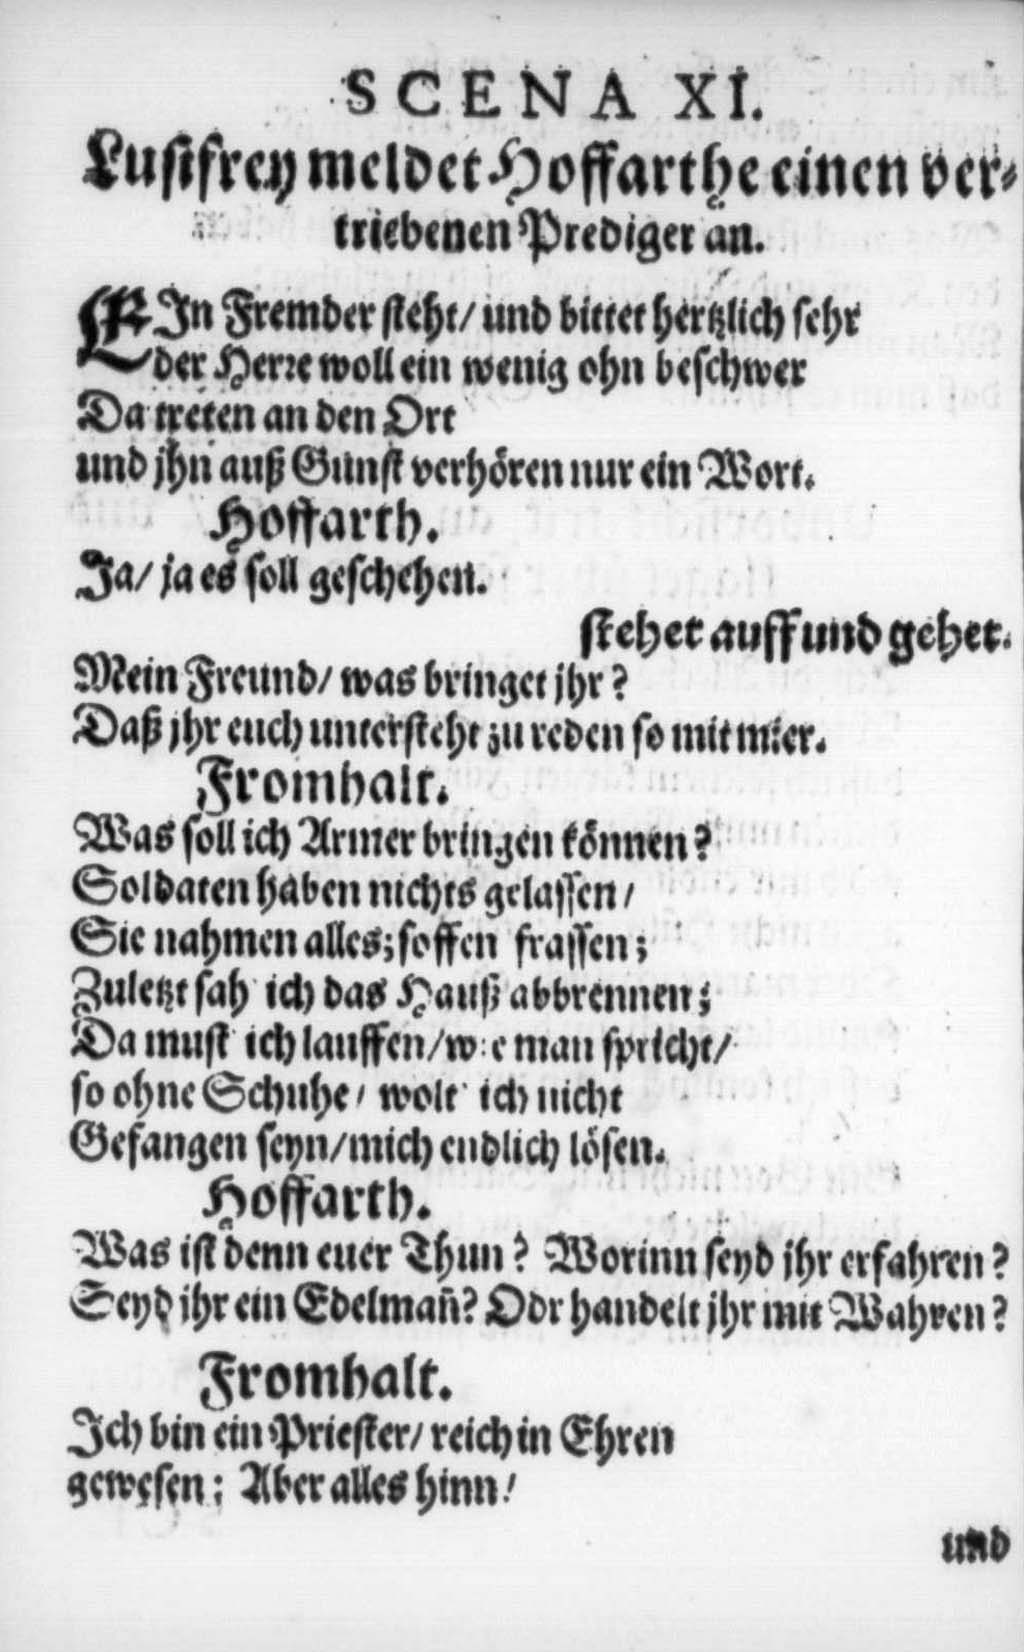 SCENA XI.
Lustfrey meldet Hoffarthe einen ver-
triebenen Prediger an.
EIn Fremder steht/ und bittet hertzlich sehr
der Herre woll ein wenig ohn beschwer
Da treten an den Ort
und jhn auß Gunst verhören nur ein Wort.
Hoffarth.
Ja/ ja es soll geschehen.
stehet auff und gehet.
Mein Freund/ was bringet jhr?
Daß jhr euch untersteht zu reden so mit mier.
Fromhalt.
Was soll ich Armer bringen können?
Soldaten haben nichts gelassen/
Sie nahmen alles; soffen frassen;
Zuletzt sah ich das Hauß abbrennen;
Da must ich lauffen/wie man spricht/
so ohne Schuhe/ wolt ich nicht
Gefangen seyn/mich endlich lösen.
Hoffarth.
Was ist denn euer Thun? Worinn seyd jhr erfahren?
Seyd jhr ein Edelmañ? Odr handelt jhr mit Wahren?
Fromhalt.
Ich bin ein Priester/ reich in Ehren
gewesen; Aber alles hinn/
und